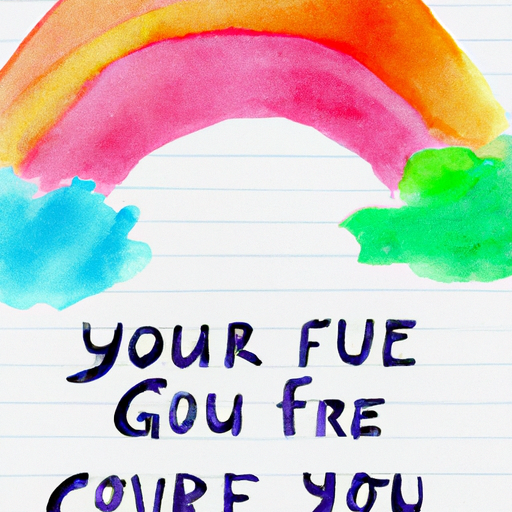 YOUR FUE
GOU FRE
COVRE YOU